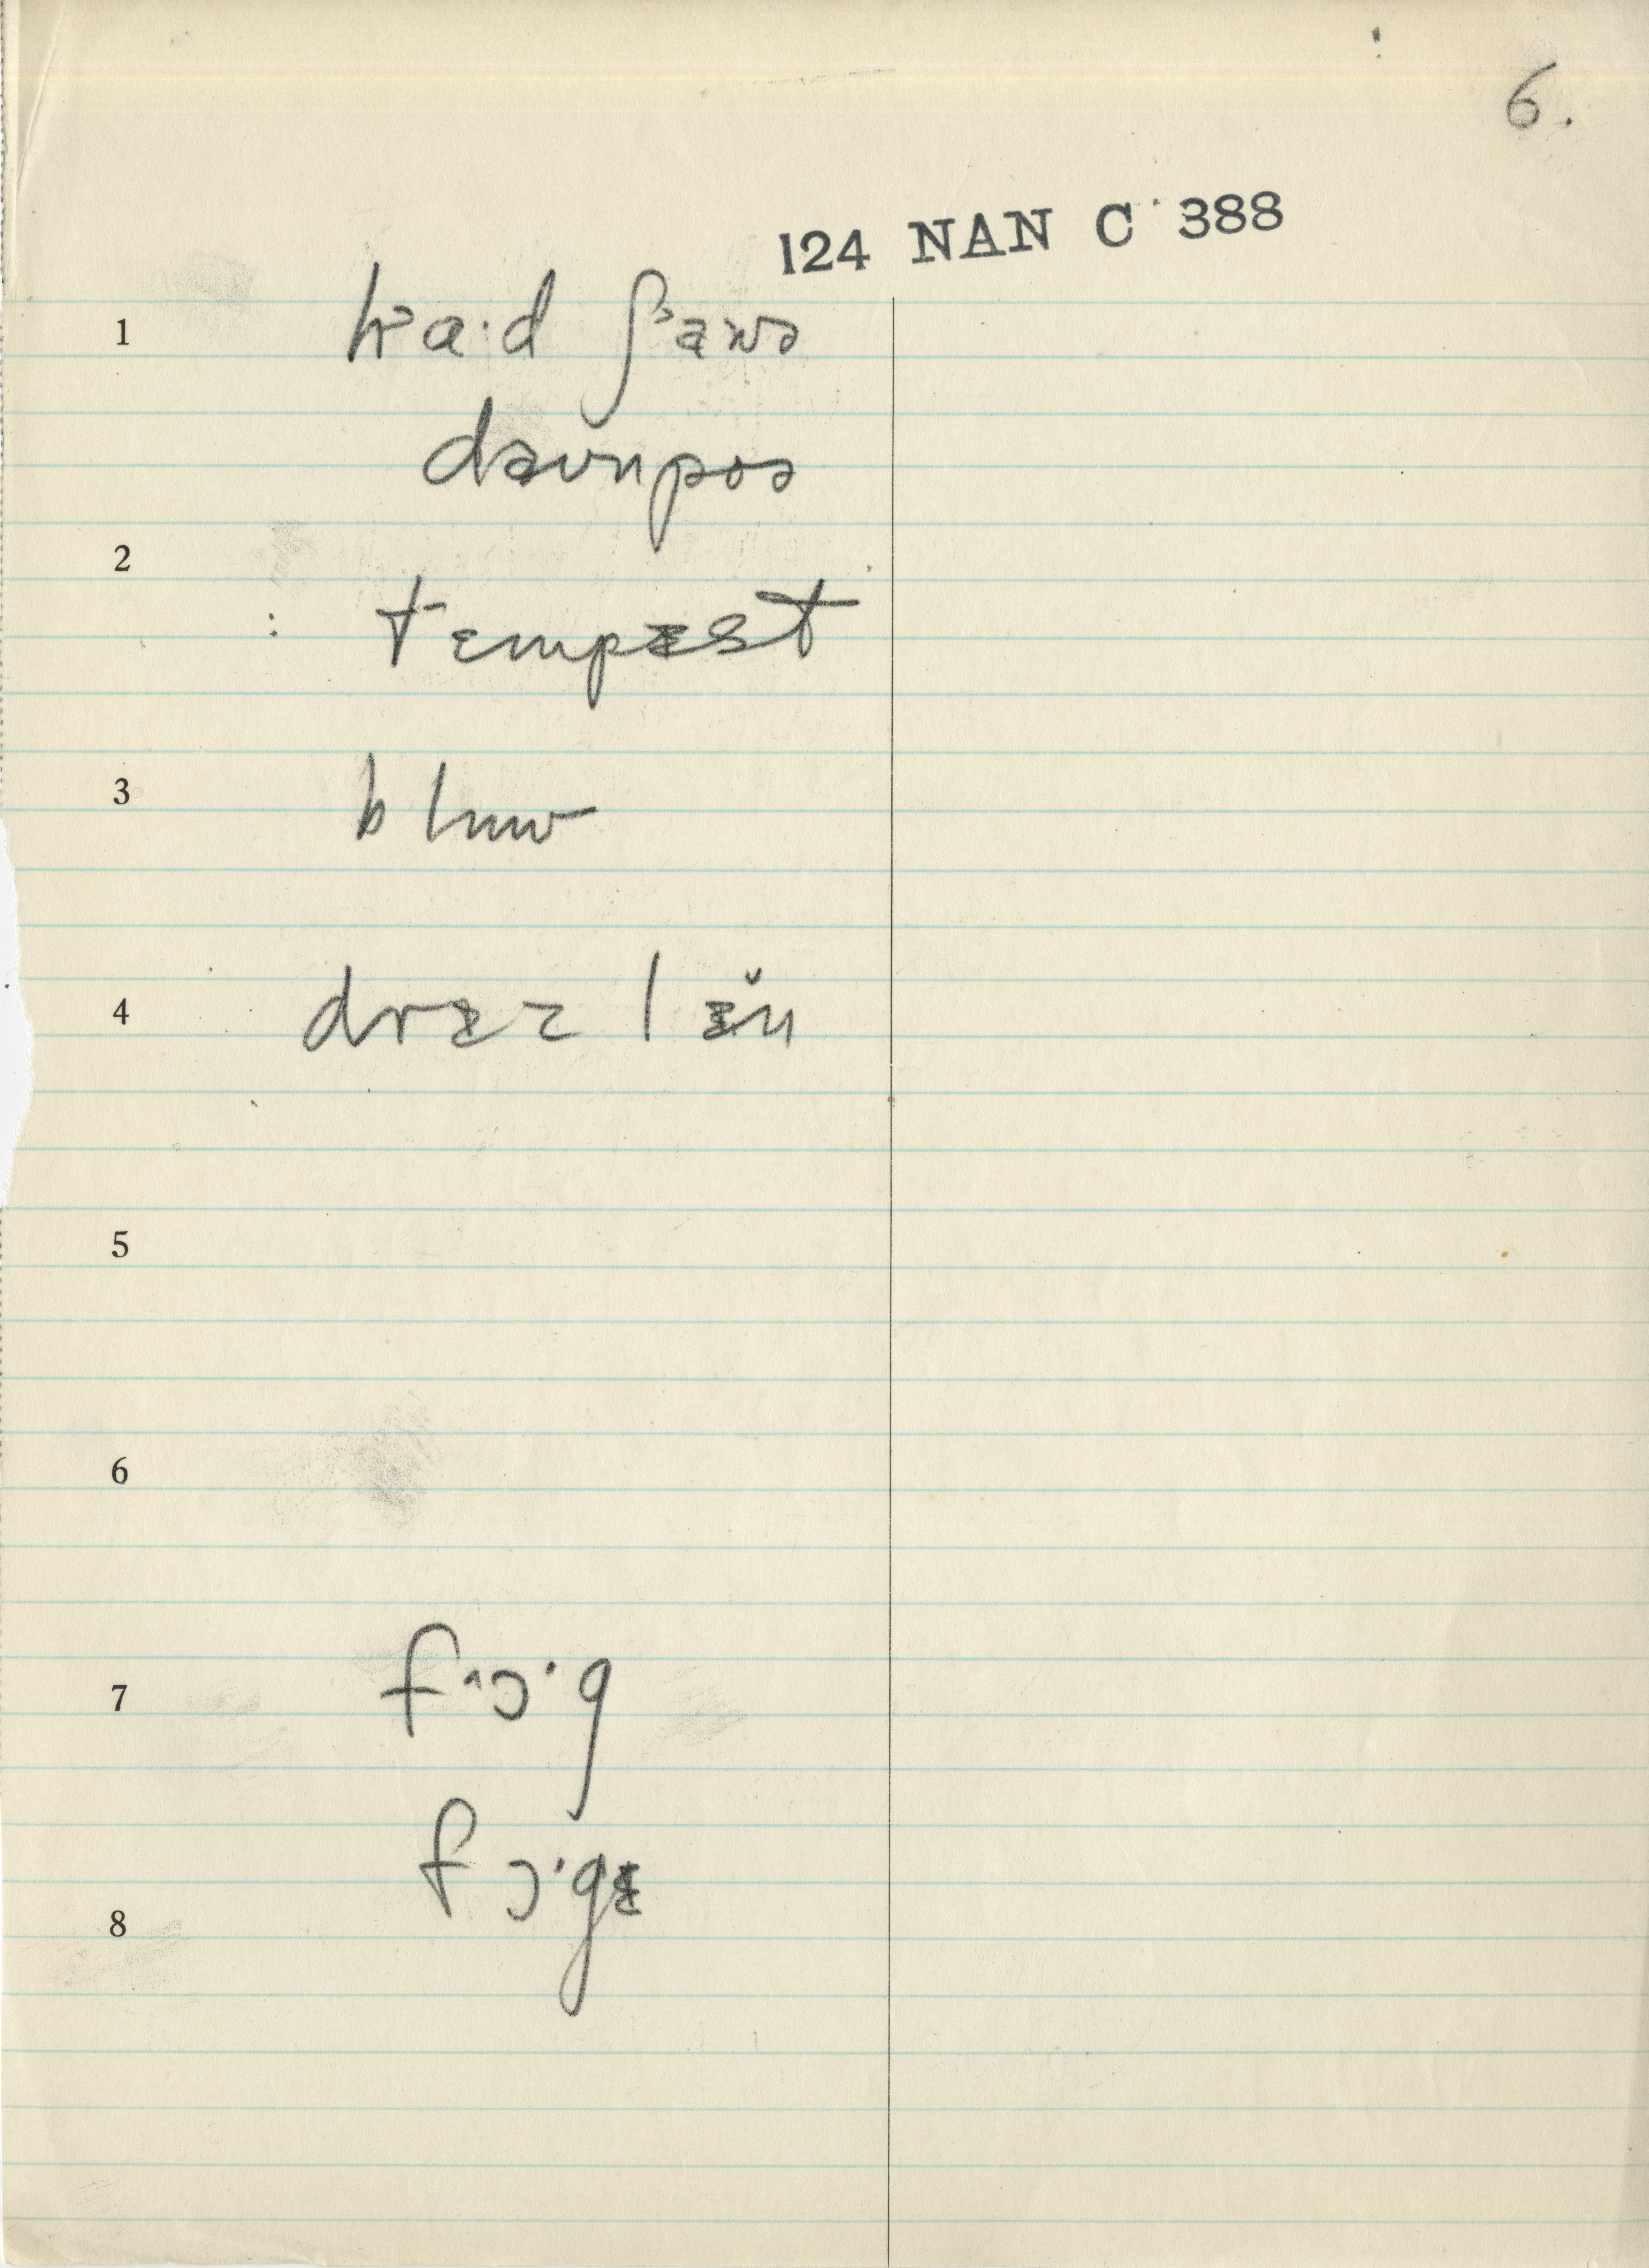 6.
124 NAN C 388
1 ha·d ʃaʊə
daʊnpoə
2
tɛmpɪst
3 bluw
4 drɪz l ɪn
5
6
7 f ɔ· g
f ɔ· gɪ
8